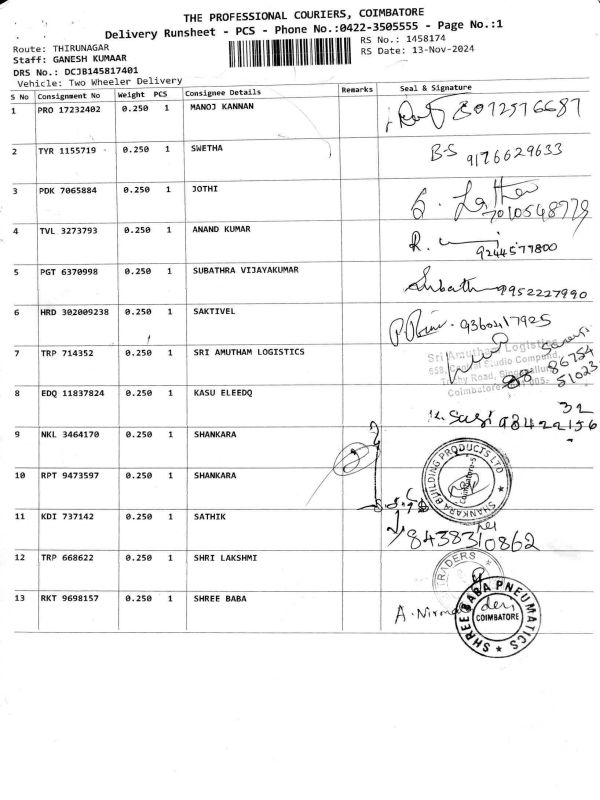 THE PROFESSIONAL COURIERS, COIMBATORE
Delivery Runsheet - PCS - Phone No.:0422-3505555 - Page No.:1
Route: THIRUNAGAR
RS No.: 1458174
Staff: GANESH KUMAAR
RS Date: 13-Nov-2024
DRS No.: DCJB145817401
Vehicle: Two Wheeler Delivery
S No Consignment No Weight PCS Consignee Details Remarks Seal & Signature
1 PRO 17232402 0.250 1 MANOJ KANNAN 8072576687
2 TYR 1155719 0.250 1 SWETHA B-S 9176629633
3 PDK 7065884 0.250 1 JOTHI
7010548779
4 TVL 3273793 0.250 1 ANAND KUMAR R.
9244577800
5 PGT 6370998 0.250 1 SUBATHRA VIJAYAKUMAR 9952227990
6 HRD 302009238 0.250 1 SAKTIVEL 9360417925
7 TRP 714352 0.250 1 SRI AMUTHAM LOGISTICS
Sri Amutham Logistics
86754
51023
8 EDQ 11837824 0.250 1 KASU ELEEDQ
32
98422156
9 NKL 3464170 0.250 1 SHANKARA
SHANKARA BUILDING PRODUCTS LTD
Coimbatore-5
10 RPT 9473597 0.250 1 SHANKARA
11 KDI 737142 0.250 1 SATHIK
8438310862
12 TRP 668622 0.250 1 SHRI LAKSHMI
TRADERS
13 RKT 9698157 0.250 1 SHREE BABA
SHREE BABA PNEUMATICS
COIMBATORE